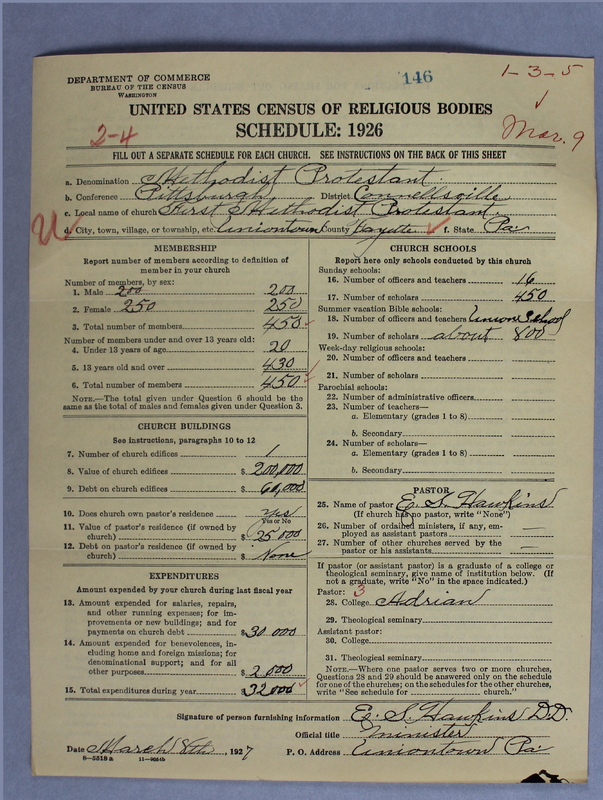 DEPARTMENT OF COMMERCE
BUREAU OF THE CENSUS
WASHINGTON
146
1-3-5
Mar. 9
UNITED STATES CENSUS OF RELIGIOUS BODIES
SCHEDULE: 1926
2-4
FILL OUT A SEPARATE SCHEDULE FOR EACH CHURCH. SEE INSTRUCTIONS ON THE BACK OF THIS SHEET
a. Denomination Methodist Protestant
b. Conference Pittsburgh District Connellsville
c. Local name of church First Methodist Protestant
U
d. City, town, village, or township, etc. Uniontown County Fayette f. State Pa
MEMBERSHIP
Report number of members according to definition of
member in your church
Number of members, by sex:
1. Male 200 200
2. Female 250 250
3. Total number of members 450
Number of members under and over 13 years old:
4. Under 13 years of age 20
5. 13 years old and over 430
6. Total number of members 450
NOTE.—The total given under Question 6 should be the
same as the total of males and females given under Question 3.
CHURCH BUILDINGS
See instructions, paragraphs 10 to 12
7. Number of church edifices 1
8. Value of church edifices $200,000
9. Debt on church edifices $60,000
10. Does church own pastor's residence yes
Yes or No
11. Value of pastor's residence (if owned by
church) $25 000
12. Debt on pastor's residence (if owned by
church) $None
EXPENDITURES
Amount expended by your church during last fiscal year
13. Amount expended for salaries, repairs,
and other running expenses; for im-
provements or new buildings; and for
payments on church debt $30 000
14. Amount expended for benevolences, in-
cluding home and foreign missions; for
denominational support; and for all
other purposes $2000
15. Total expenditures during year $32000
CHURCH SCHOOLS
Report here only schools conducted by this church
Sunday schools:
16. Number of officers and teachers 16
17. Number of scholars 450
Summer vacation Bible schools:
18. Number of officers and teachers Union School
19. Number of scholars about 800
Week-day religious schools:
20. Number of officers and teachers
21. Number of scholars
Parochial schools:
22. Number of administrative officers
23. Number of teachers—
a. Elementary (grades 1 to 8)
b. Secondary
24. Number of scholars—
a. Elementary (grades 1 to 8)
b. Secondary
PASTOR
25. Name of pastor E. S. Hawkins
(If church has no pastor, write "None")
26. Number of ordained ministers, if any, em-
ployed as assistant pastors —
27. Number of other churches served by the
pastor or his assistants —
If pastor (or assistant pastor) is a graduate of a college or
theological seminary, give name of institution below. (If
not a graduate, write "No" in the space indicated.)
Pastor: 3
28. College Adrian
29. Theological seminary
Assistant pastor:
30. College
31. Theological seminary
NOTE.—Where one pastor serves two or more churches,
Questions 28 and 29 should be answered only on the schedule
for one of the churches; on the schedules for the other churches,
write "See schedule for church."
Signature of person furnishing information E. S. Hawkins D.D.
Official title minister
Date March 8th, 1927 P. O. Address Uniontown Pa
8—5518a 11—9664b